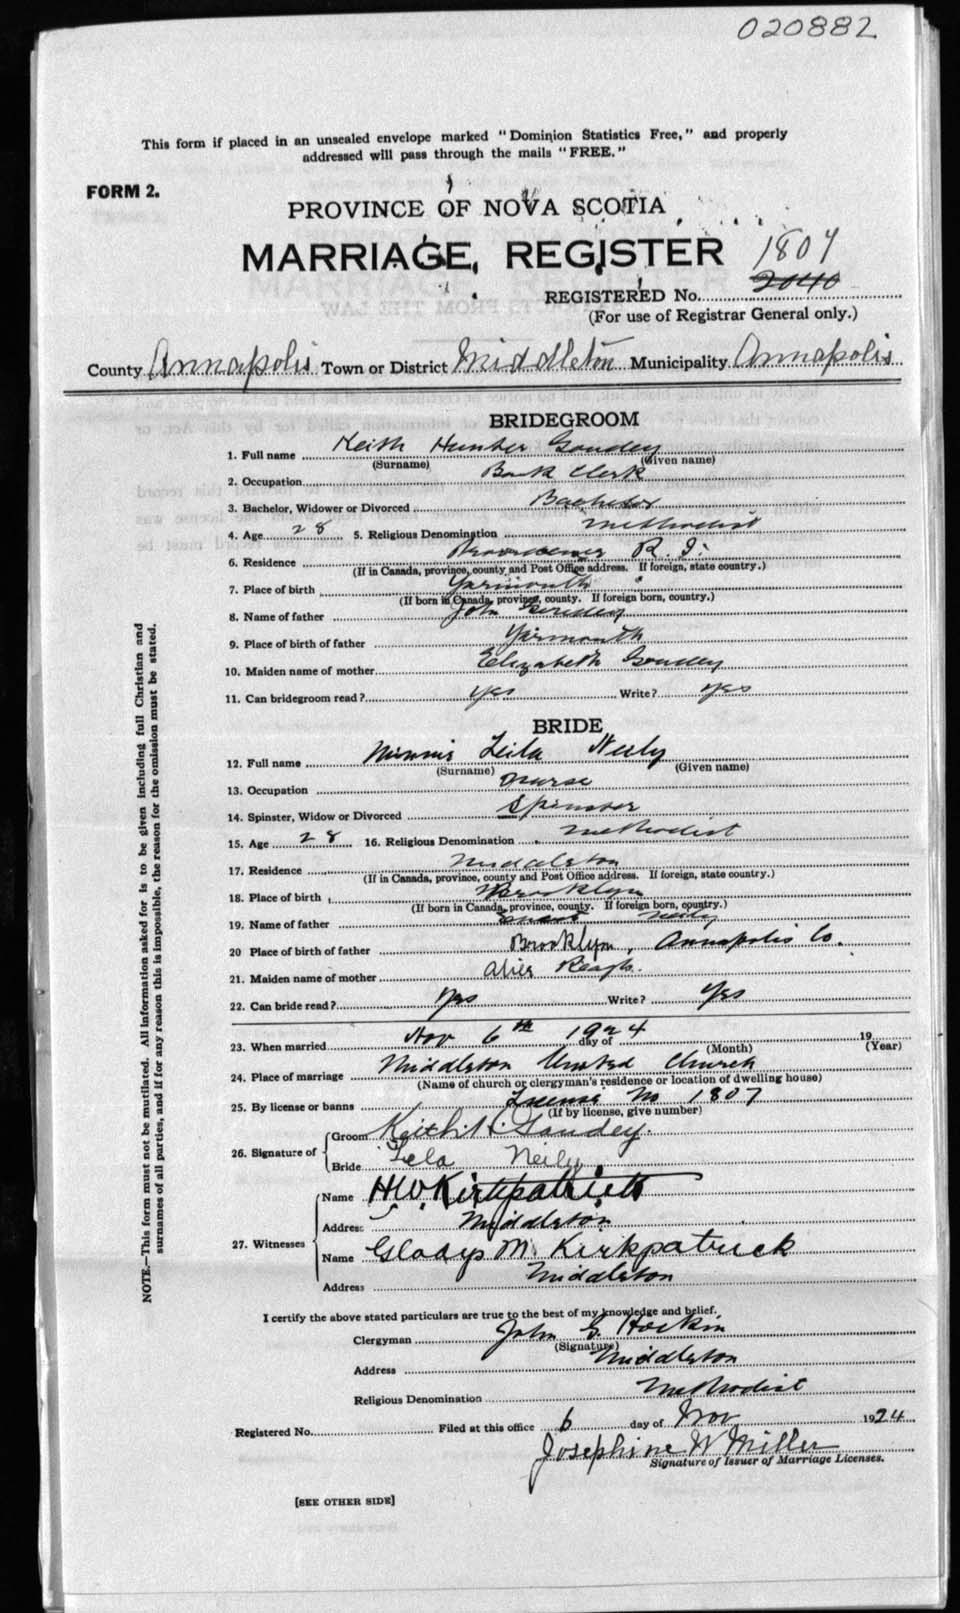 020882
This form if placed in an unsealed envelope marked "Dominion Statistics Free," and properly
addressed will pass through the mails "FREE."
FORM 2.
PROVINCE OF NOVA SCOTIA
MARRIAGE REGISTER
1807
2040
REGISTERED No.
(For use of Registrar General only.)
County Annapolis Town or District Middleton Municipality Annapolis
BRIDEGROOM
1. Full name Keith Hunter Goudey
(Surname) (Given name)
2. Occupation Bank Clerk
3. Bachelor, Widower or Divorced Bachelor
4. Age 28 5. Religious Denomination Methodist
6. Residence Providence R. I.
(If in Canada, province, county and Post Office address. If foreign, state country.)
7. Place of birth Yarmouth
(If born in Canada, province, county. If foreign born, country.)
8. Name of father John Goudey
9. Place of birth of father Yarmouth
10. Maiden name of mother Elizabeth Goudey
11. Can bridegroom read? yes Write? yes
BRIDE
12. Full name Minnie Leila Neily
(Surname) (Given name)
13. Occupation Nurse
14. Spinster, Widow or Divorced Spinster
15. Age 28 16. Religious Denomination Methodist
17. Residence Middleton
(If in Canada, province, county and Post Office address. If foreign, state country.)
18. Place of birth Brooklyn
(If born in Canada, province, county. If foreign born, country.)
19. Name of father Neily
20 Place of birth of father Brooklyn, Annapolis Co.
21. Maiden name of mother Alice Reagh.
22. Can bride read? Yes Write? Yes
23. When married Nov 6th 1924 day of 19
(Month) (Year)
24. Place of marriage Middleton United Church
(Name of church or clergyman's residence or location of dwelling house)
25. By license or banns License No 1807
(If by license, give number)
26. Signature of
Groom Keith H. Goudey.
Bride Lela Neily
27. Witnesses
Name H.W. Kirkpatrick
Address Middleton
Name Gladys M. Kirkpatrick
Address Middleton
I certify the above stated particulars are true to the best of my knowledge and belief.
Clergyman John G. Hockin
(Signature)
Address Middleton
Religious Denomination Methodist
Registered No. Filed at this office 6 day of Nov 1924
Josephine W Miller
Signature of Issuer of Marriage Licenses.
[SEE OTHER SIDE]
NOTE.—This form must not be mutilated. All information asked for is to be given including full Christian and
surnames of all parties, and if for any reason this is impossible, the reason for the omission must be stated.